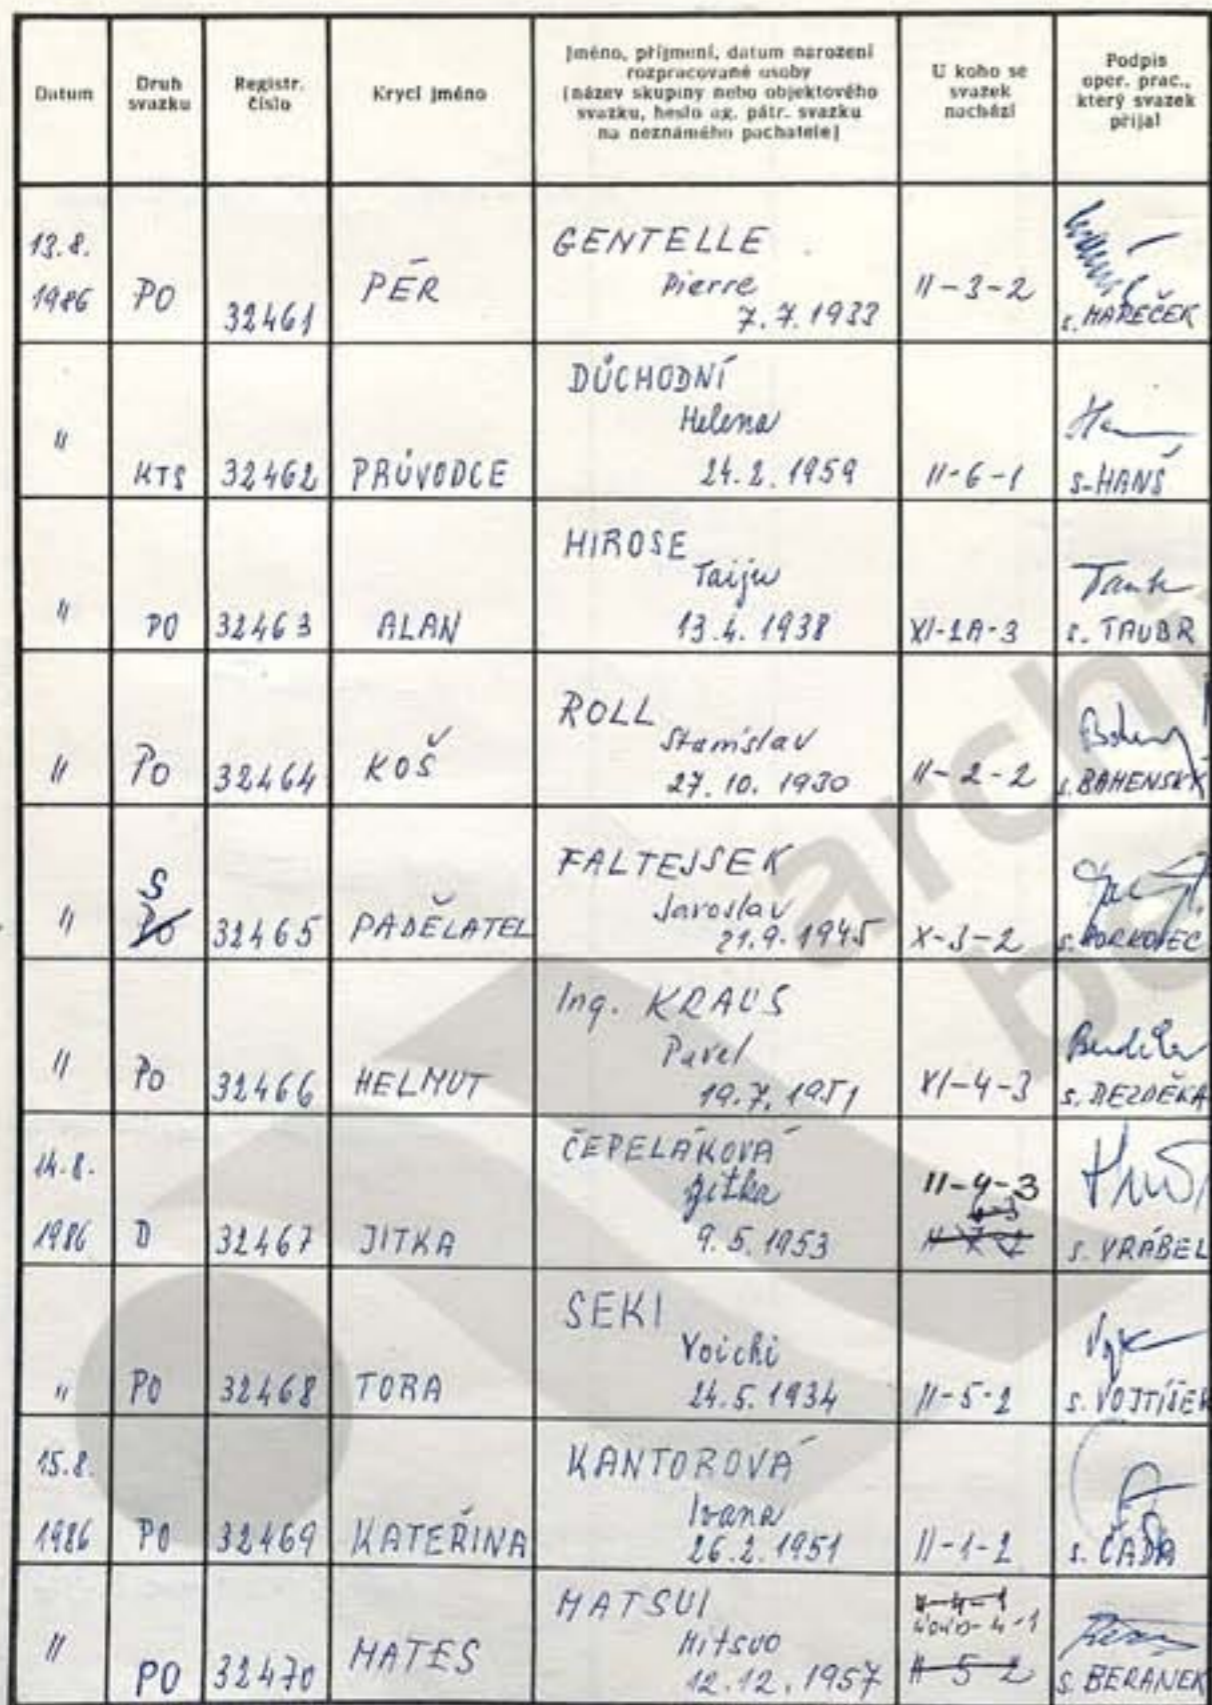 Datum
Druh
svazku
Registr.
číslo
Krycí jméno
Jméno, příjmení, datum narození
rozpracované osoby
(název skupiny nebo objektového
svazku, heslo ag. pátr. svazku
na neznámého pachatele)
U koho se
svazek
nachází
Podpis
oper. prac.,
který svazek
přijal
13.8.
1986 PO 32461 PÉR
GENTELLE
Pierre
7.7.1933
II-3-2
s. MAREČEK
"
KTS 32462 PRŮVODCE
DŮCHODNÍ
Helena
24.2.1959
II-6-1
s-HANŠ
"
PO 32463 ALAN
HIROSE
Taiju
13.4.1938
XI-2A-3
s. TAUBR
"
PO 32464 KOŠ
ROLL
Stanislav
27.10.1930
II-2-2
s. BAHENSKÝ
"
S
PO 32465 PADĚLATEL
FALTEJSEK
Jaroslav
21.9.1945
X-3-2
s. BORKOVEC
"
PO 32466 HELMUT
Ing. KRAUS
Pavel
19.7.1951
XI-4-3
s. BEZDĚKA
14.8.
1986 D 32467 JITKA
ČEPELÁKOVÁ
Jitka
9.5.1953
II-4-3
s. VRÁBEL
"
PO 32468 TORA
SEKI
Yoichi
24.5.1934
II-5-2
s. VOJTÍŠEK
15.8.
1986 PO 32469 KATEŘINA
KANTOROVÁ
Ivana
26.2.1951
II-1-2
s. ČADA
"
PO 32470 MATES
MATSUI
Mitsuo
12.12.1957
II-4-1
II 5 2
s. BERÁNEK
arch